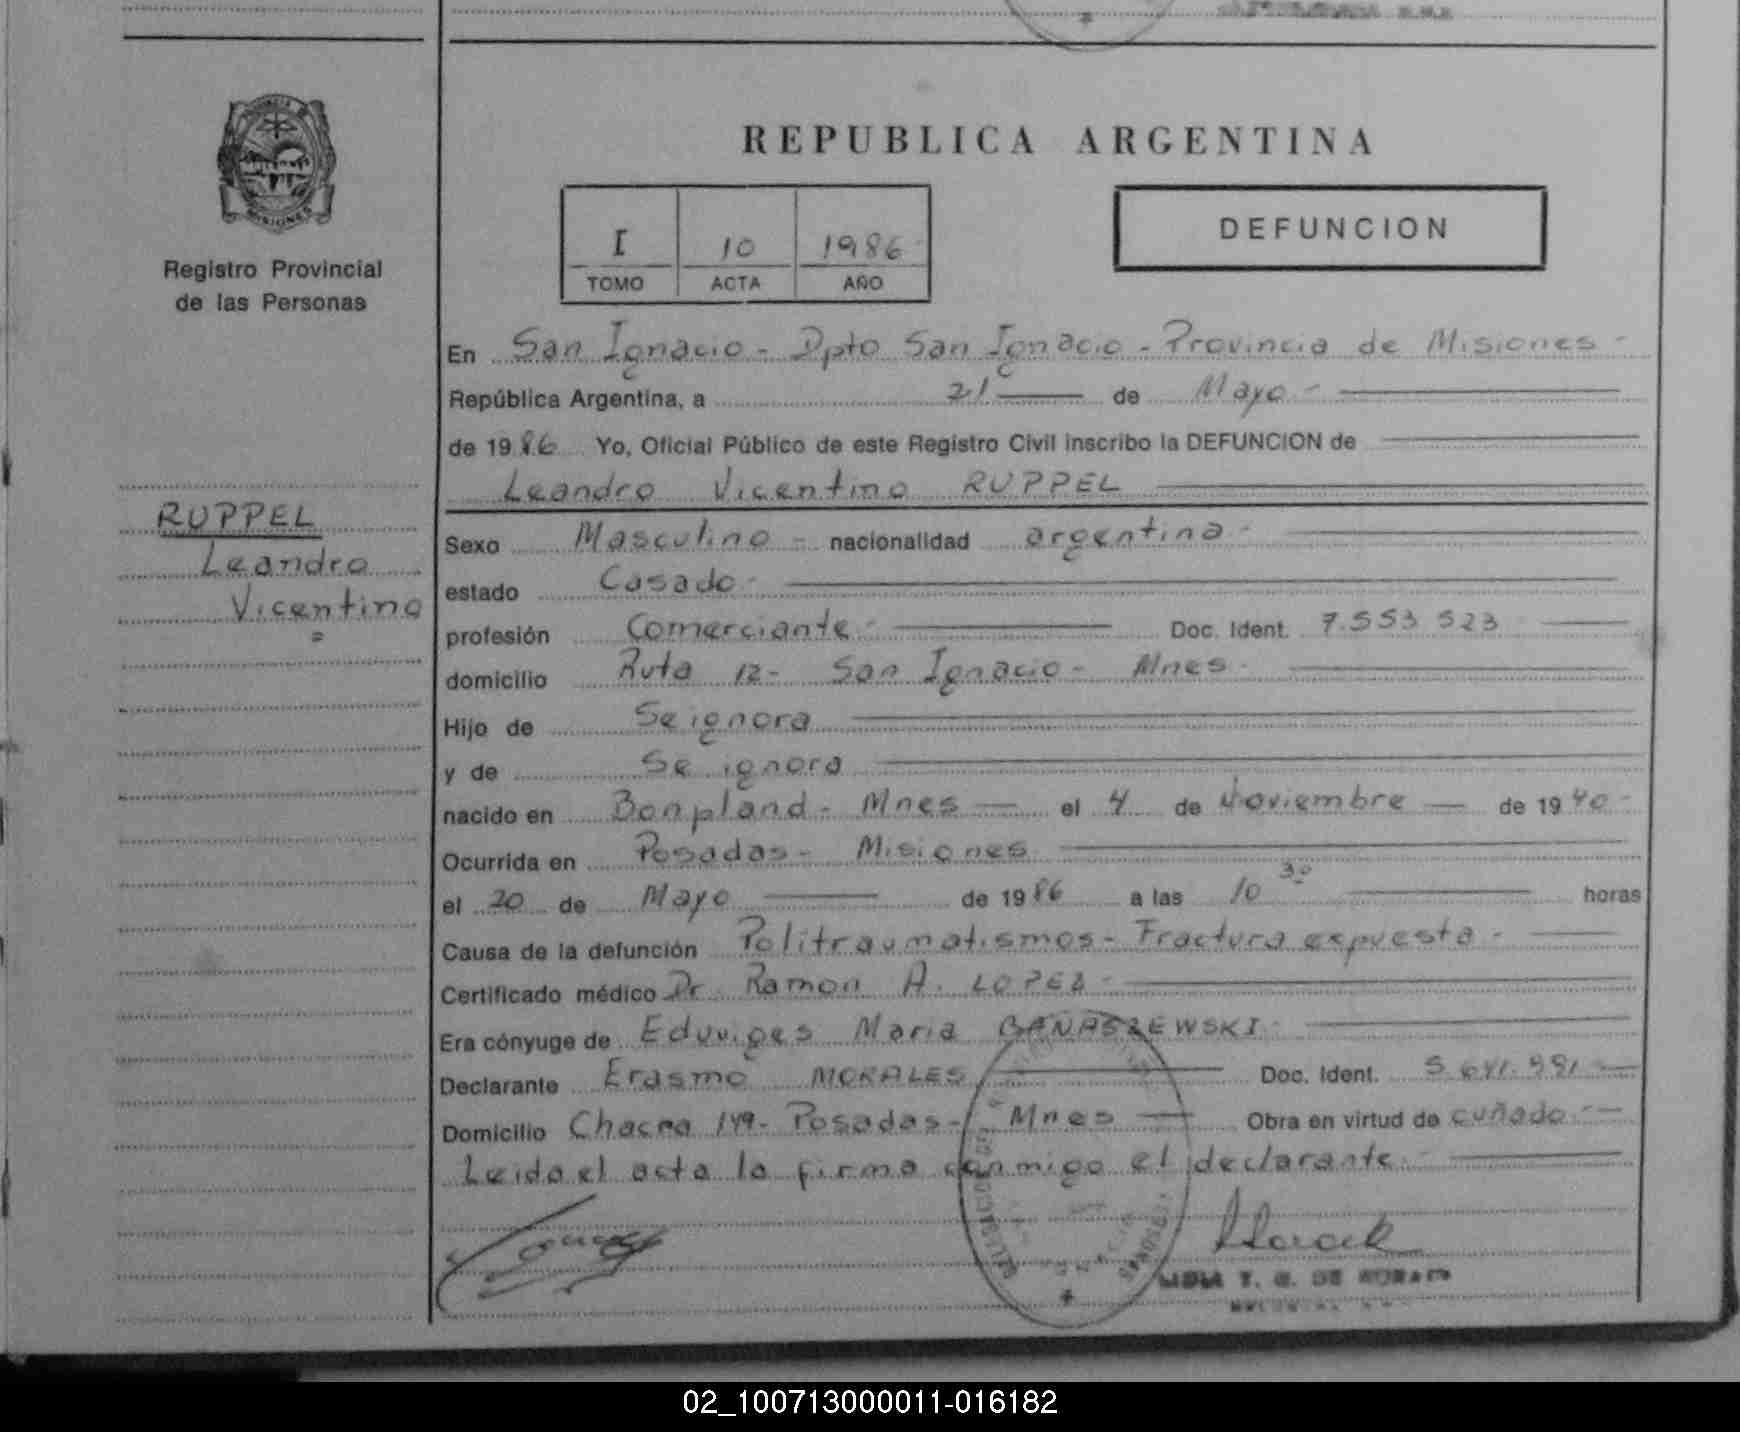 REPUBLICA ARGENTINA
MISIONES
Registro Provincial
de las Personas
I 10 1986
TOMO ACTA AÑO
DEFUNCION
En San Ignacio - Dpto San Ignacio - Provincia de Misiones -
República Argentina, a 21 de Mayo -
de 1986 Yo, Oficial Público de este Registro Civil inscribo la DEFUNCION de
Leandro Vicentino RUPPEL
RUPPEL
Leandro
Vicentino
Sexo Masculino - nacionalidad argentina -
estado Casado -
profesión Comerciante - Doc. Ident. 7.553.523
domicilio Ruta 12 - San Ignacio - Mnes -
Hijo de Se ignora
y de Se ignora
nacido en Bonpland - Mnes - el 4 de Noviembre - de 1940 -
Ocurrida en Posadas - Misiones
el 20 de Mayo de 1986 a las 10 30 horas
Causa de la defunción Politraumatismos - Fractura expuesta -
Certificado médico Dr. Ramon A. LOPEZ -
Era cónyuge de Eduviges Maria BANASZEWSKI -
Declarante Erasmo MORALES Doc. Ident.
Domicilio Chacra 149 - Posadas - Mnes - Obra en virtud de cuñado -
Leida el acta la firma conmigo el declarante -
02_100713000011-016182